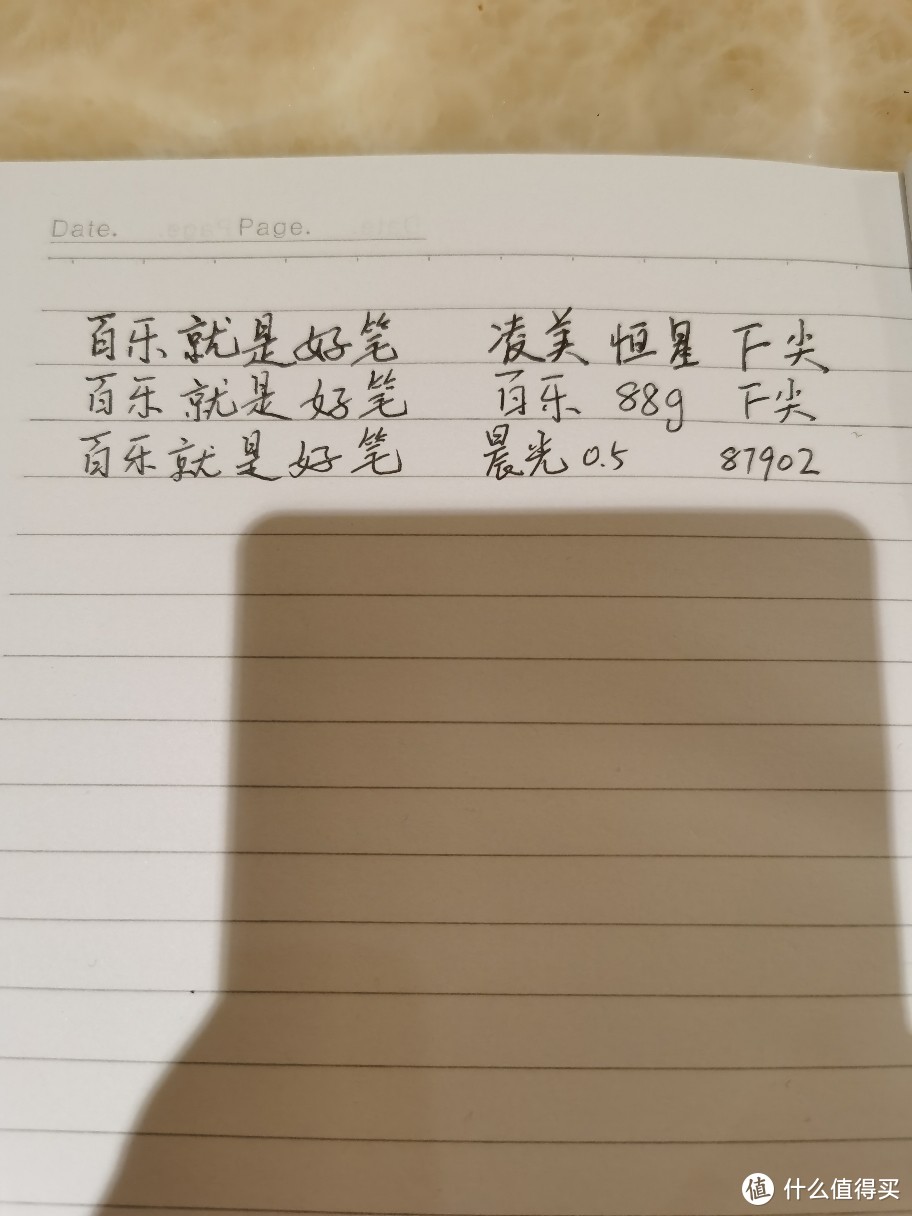 Date. Page.
百乐就是好笔 凌美 恒星 F尖
百乐就是好笔 百乐 88g F尖
百乐就是好笔 晨光 0.5 87902
值 什么值得买